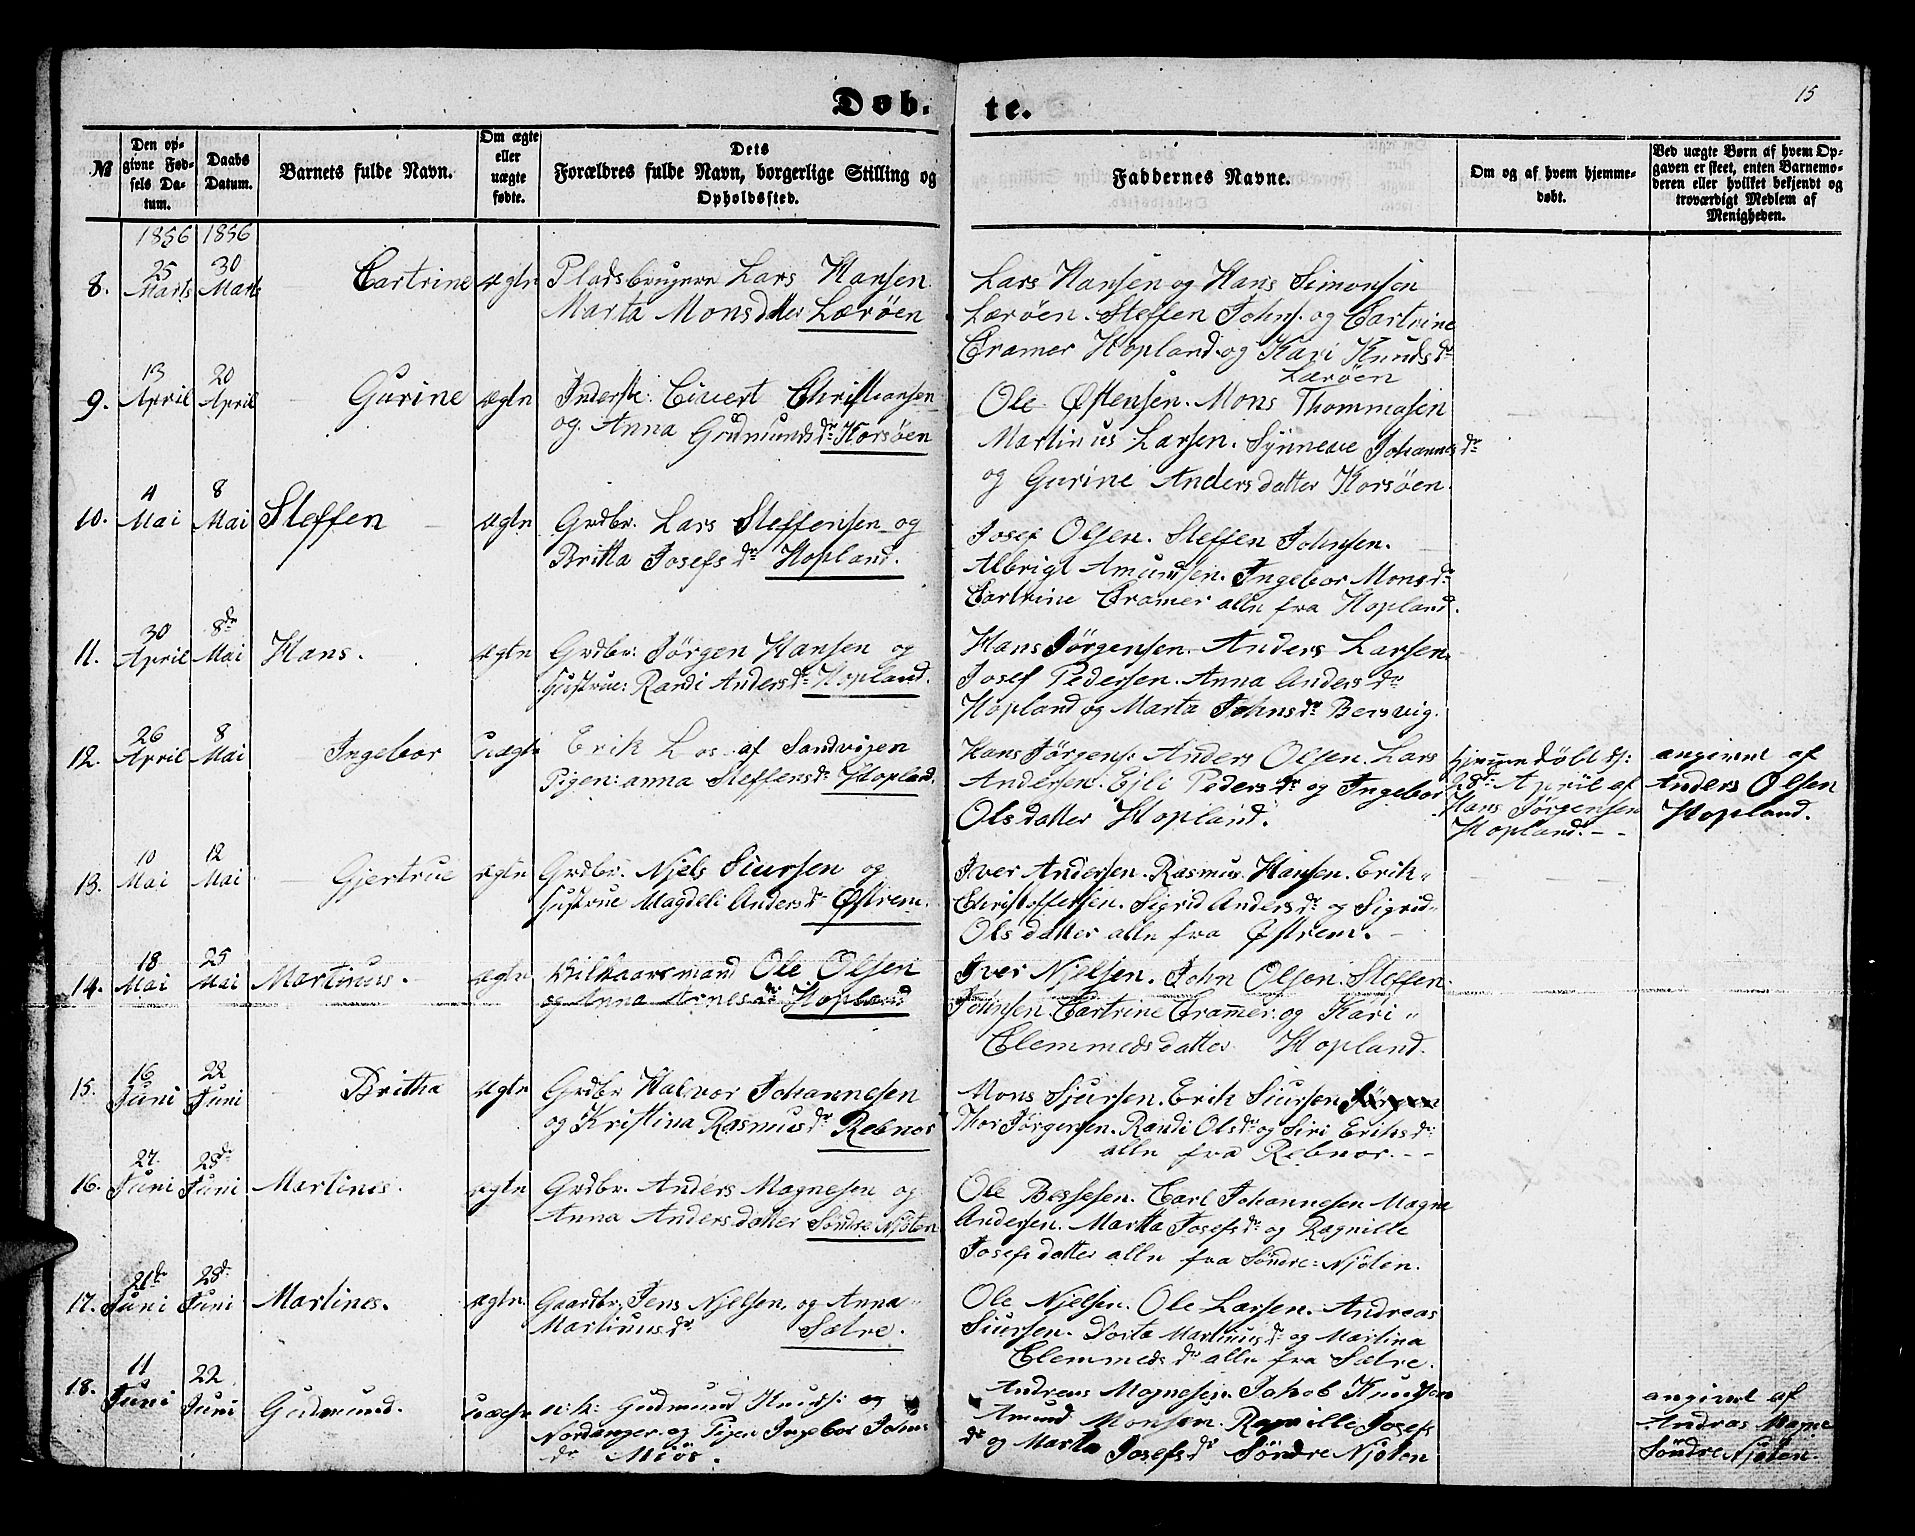 Døb. te.
15
№
Den op-
givne Fød-
sels Da-
tum.
Daabs
Datum.
Barnets fulde Navn.
Om ægte
eller
uægte
fødte.
Dets
Forældres fulde Navn, borgerlige Stilling og
Opholdssted.
Faddernes Navne.
Om og af hvem hjemme-
døbt.
Ved uægte Børn af hvem Op-
gaven er skeet, enten Barnemo-
deren eller hvilket bekjendt og
troværdigt Medlem af
Menigheden.
1856 1856
8.
25
Marts
30
Marts
Cartrine
ægte
Pladsbruger Lars Hansen
Marta Monsdatter Lærøen
Lars Hansen og Hans Simonsen
Lærøen. Steffen Johns. og Cartrine
Cramer Hopland og Kari Knudsdr
Lærøen
9.
13
April
20
April
Gurine
ægte
Inderst: Eivert Christiansen
og Anna Gudmundsdr Horsøen
Ole Østensen. Mons Thommasen
Martinus Larsen. Synneve Johannesdr
og Gurine Andersdatter Horsøen.
10.
4
Mai
8
Mai
Steffen
ægte
Grdbr. Lars Steffensen og
Britta Josefsdr Hopland.
Josef Olsen. Steffen Johnsen.
Albrigt Amundsen. Ingebor Monsdr
Cartrine Cramer alle fra Hopland.
11.
30
April
8de
Mai
Hans.
ægte
Grdbr. Jørgen Hansen og
Hustrue: Randi Andersdr Hopland.
Hans Jørgensen. Anders Larsen.
Josef Pedersen. Anna Andersdr
Hopland og Marta Johnsdr Bersvig.
12.
26
April
8
Mai
Ingebor
uægte
Erik Los af Sandvigen
Pigen: anna Steffensdr Hopland.
Hans Jørgens: Anders Olsen. Lars
Andersen. Eli Pedersdr og Ingebor
Olsdatter Hopland.
hjemmedøbt d:
28de April af
Hans Jørgensen
Hopland. - -
angivet af
Anders Olsen
Hopland.
13.
10
Mai
12
Mai
Gjertrue
ægte
Grdbr. Njels Siursen og
Hustrue Magdeli Andersdr Østrem.
Iver Andersen. Rasmus Hansen. Erik
Christoffersen. Sigrid Andersdr og Sigrid
Olsdatter alle fra Østrem.
14.
18
Mai
25
Mai
Martinus.
ægte
Vilkaarsmand Ole Olsen
og Anna Arnesdr Hopland
Iver Njelsen. John Olson. Steffen
Johnsen. Cartrine Cramer. og Kari
Clemmedsdatter Hopland.
15.
16
Juni
22
Juni
Britha
ægte
Grdbr Halvor Johannesen
og Kristina Rasmusdr Rebnor
Mons Sjursen. Erik Siursen
Thor Jørgensen. Randi Olsdr og Siri Eriksdr
alle fra Rebnor. - -
16.
27
Juni
28de
Juni
Martines.
ægte
Grdbr. Anders Magnesen og
Anna Andersdatter Søndre Njøten
Ole Bessesen. Carl Johannesen Magne
Andersen. Martta Josefsdr og Ragnille
Josefsdatter alle fra Søndre Njøten.
17.
21de
Juni
28de
Juni
Martines.
ægte
Gaardbr: Jens Njelsen og Anna
Martinusdr Sætre.
Ole Njelsen. Ole Larsen. Andreas
Siursen. Dorta Martinusdr og Martina
Clemmedsdr alle fra Sætre.
18.
11
Juni
22
Juni
Gudmund.
uægte
u: k: Gudmund Knuds: af
Nordanger og Pigen Ingebor Johns
dr Miøs.
Andreas Magnesen. Jakob Knudsen
Amund Monsen. Ragnille Josefs
dr og Marta Josefsdr Søndre Njøten
angivet af
Andras Magne
Søndre Njøten.